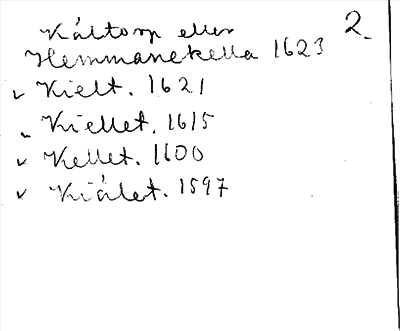 Kåltorp eller 2.
Hemmanekella 1623
v Kielt. 1621
" Kiellet. 1615
v Kellet. 1600
v Kiålet. 1597